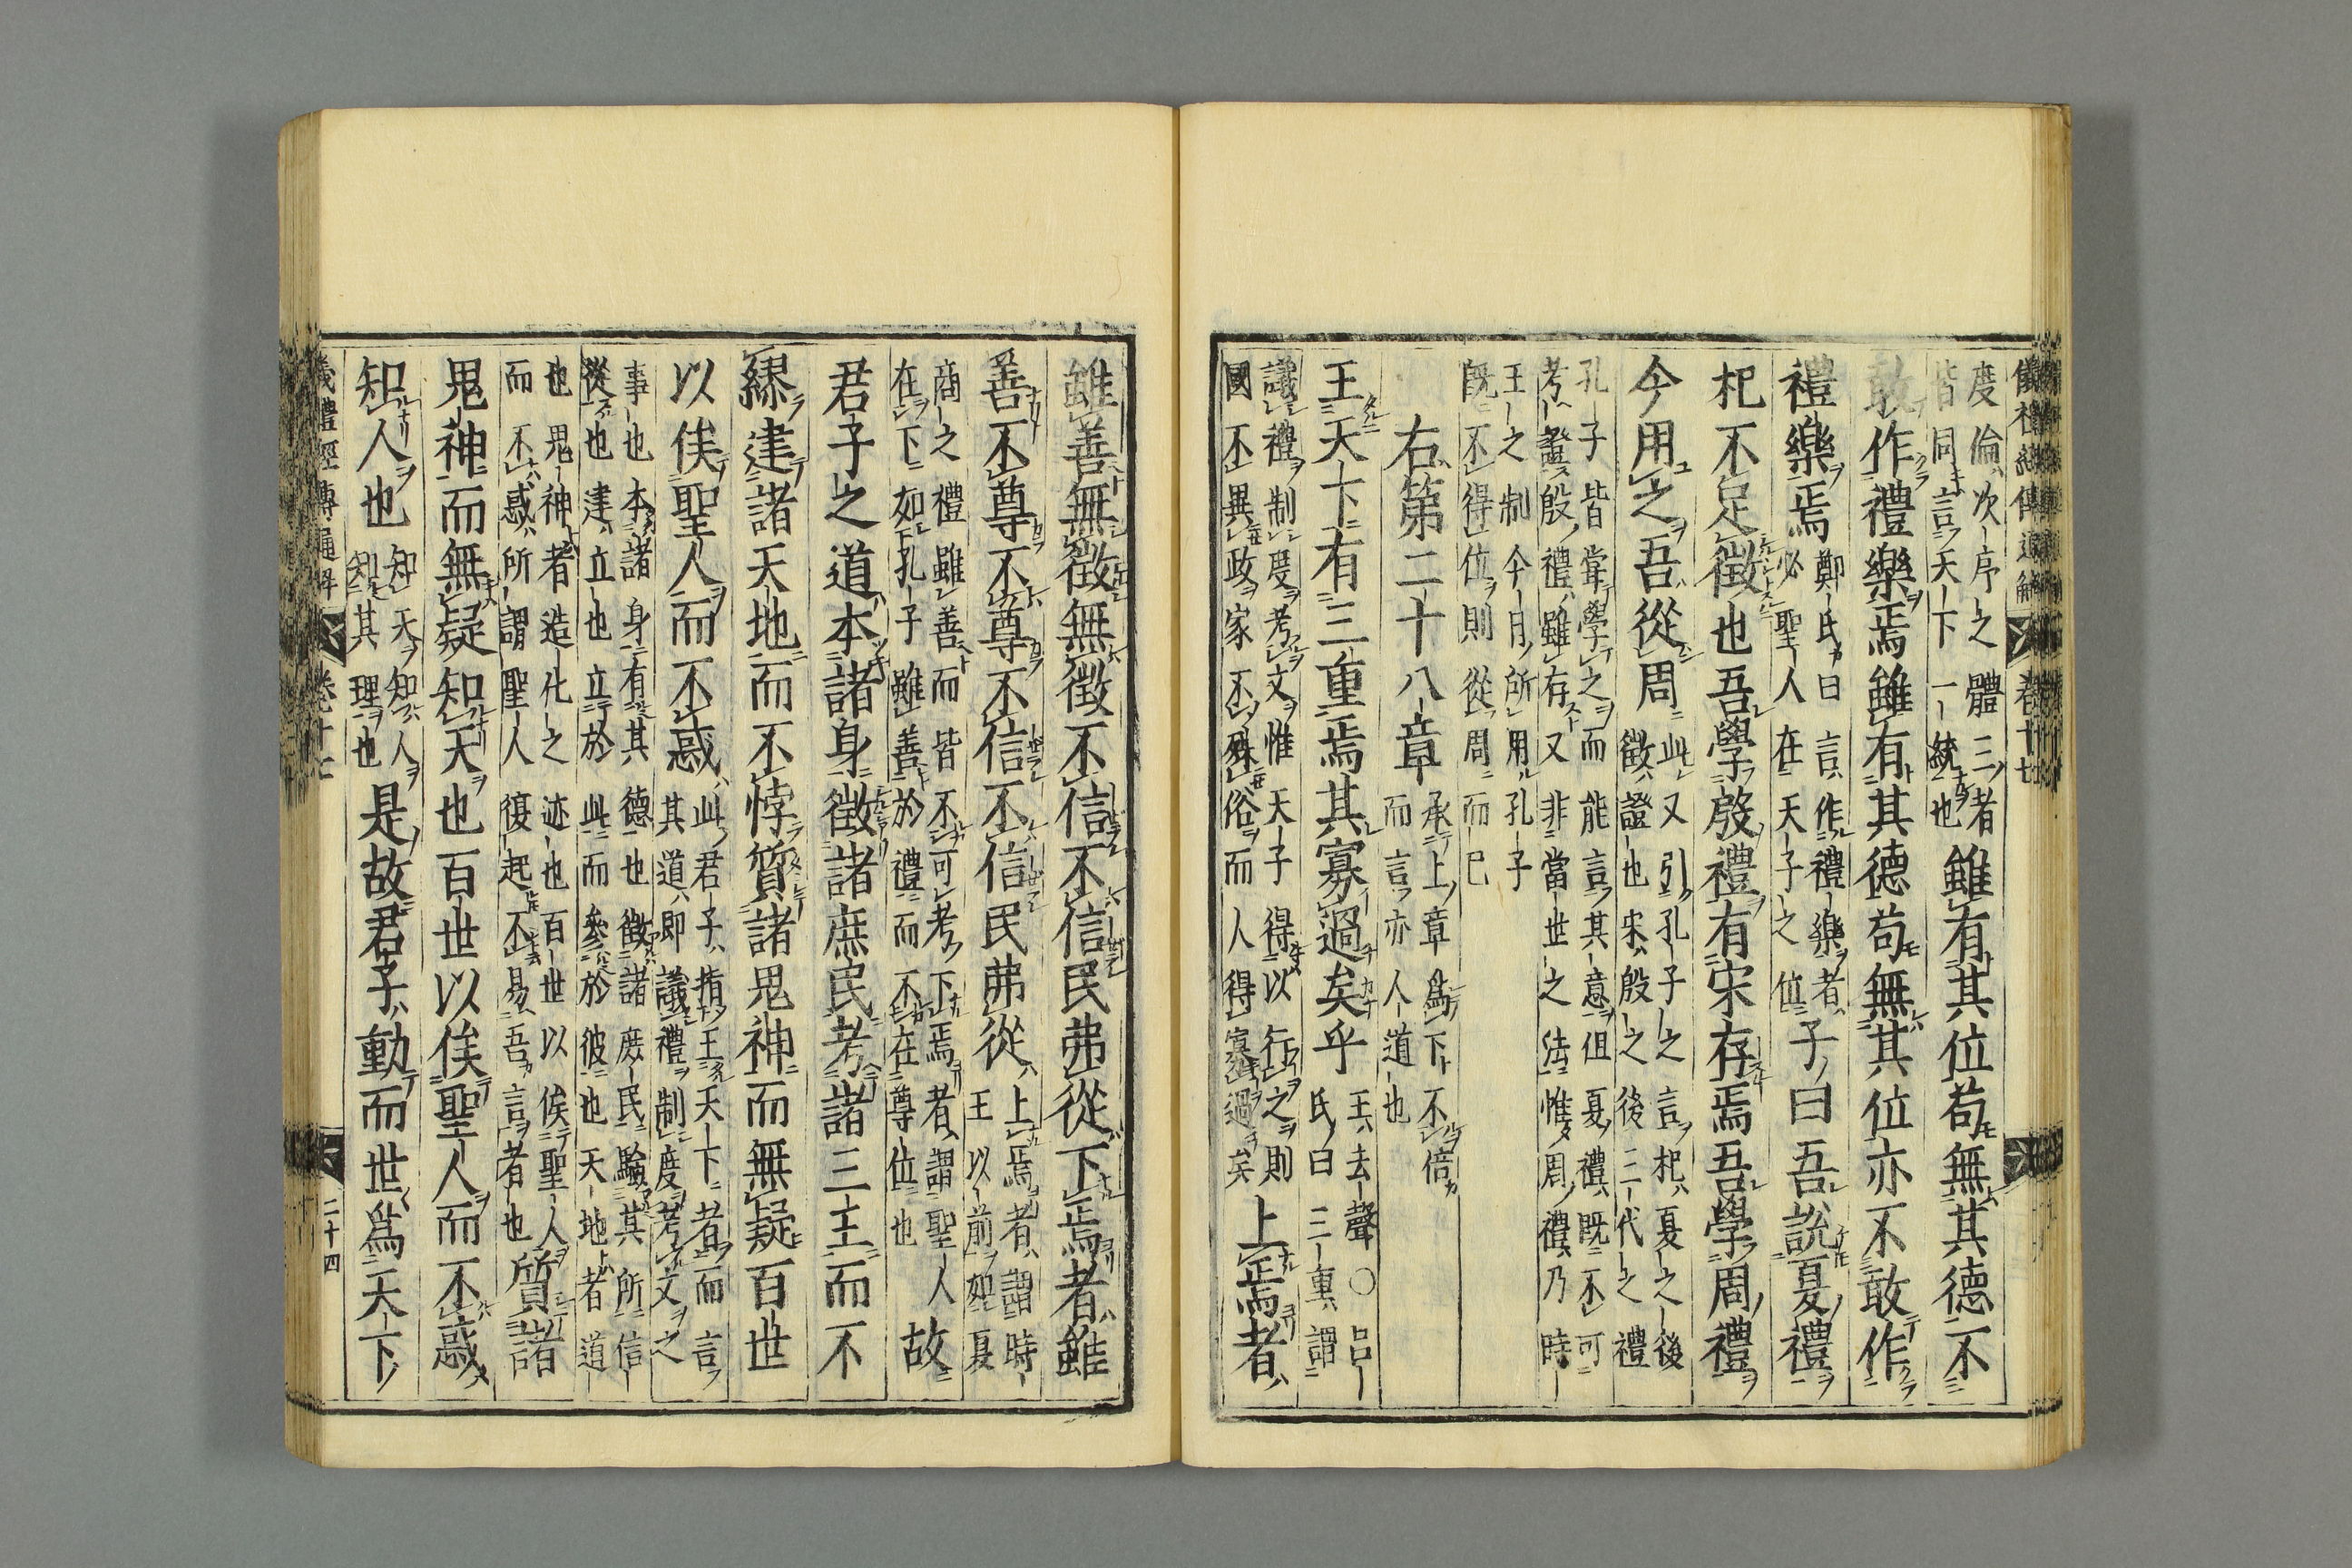 儀禮經傳通解 卷十七
度倫次序之體三者
皆同言天下一統也
雖有其位苟無其德不
敢作禮樂焉雖有其德苟無其位亦不敢作
禮樂焉
鄭氏曰言作禮樂者
必聖人在天子之位
子曰吾說夏禮
杞不足徵也吾學殷禮有宋存焉吾學周禮
今用之吾從周
此又引孔子之言杞夏之後
徵證也宋殷之後三代之禮
孔子皆嘗學之而能言其意但夏禮既不可
考證殷禮雖存又非當世之法惟周禮乃時
王之制今日所用孔子
既不得位則從周而已
右第二十八章
承上章爲下不倍
而言亦人道也
王天下有三重焉其寡過矣乎
王去聲○呂
氏曰三重謂
議禮制度考文惟天子得以行之則
國不異政家不殊俗而人得寡過矣
上焉者
雖善無徵無徵不信不信民弗從下焉者雖
善不尊不尊不信不信民弗從
上焉者謂時
王以前如夏
商之禮雖善而皆不可考下焉者謂聖人
在下如孔子雖善於禮而不在尊位也
故
君子之道本諸身徵諸庶民考諸三王而不
繆建諸天地而不悖質諸鬼神而無疑百世
以俟聖人而不惑
此君子指王天下者而言
其道即議禮制度考文之
事也本諸身有其德也徵諸庶民驗其所信
從也建立也立於此而參於彼也天地者道
也鬼神者造化之迹也百世以俟聖人
而不惑所謂聖人復起不易吾言者也
質諸
鬼神而無疑知天也百世以俟聖人而不惑
知人也
知天知人
知其理也
是故君子動而世爲天下
儀禮經傳通解 卷十七 二十四